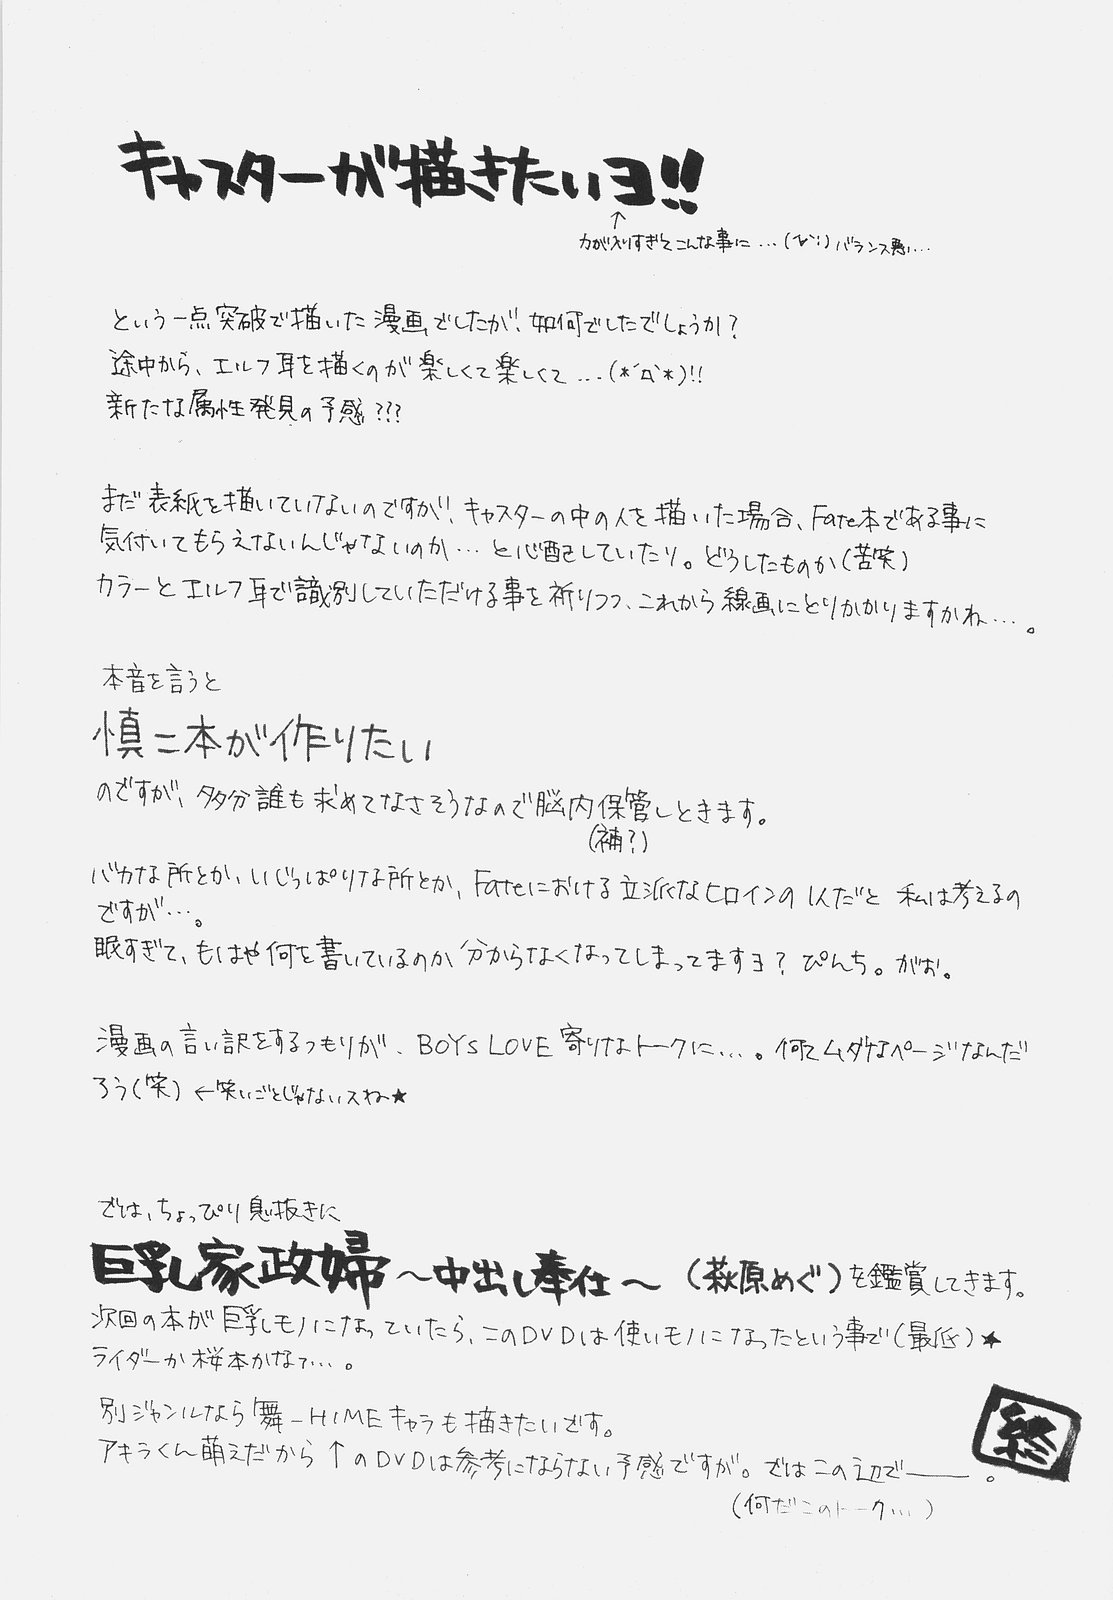 キャスターが描きたいヨ!!
↑
力が入りすぎてこんな事に…(;´ν`) バランス悪い…
という一点突破で描いた漫画でしたが、如何でしたでしょうか?
途中から、エルフ耳を描くのが楽しくて楽しくて…(*´ロ`*)!!
新たな属性発見の予感???
まだ表紙を描いていけないのですが、キャスターの中の人を描いた場合、Fate本である事に
気付いてもらえないんじゃないのか…と心配していたり。どうしたものか(苦笑)
カラーとエルフ耳で識別していただける事を祈りつつ、これから線画にとりかかりますかね…。
本音を言うと
慎二本が作りたい
のですが、多分誰も求めてなさそうなので脳内保管しときます。
(補?)
バカな所とか、いじっぱりな所とか、Fateにおける立派なヒロインの1人だと私は考えるの
ですが…。
眠すぎて、もはや何を書いているのか分からなくなってしまってますヨ?ぴんち。がお。
漫画の言い訳をするつもりが、BOYS LOVE寄りなトークに…。何てムダなページなんだ
ろう(笑) ←笑いごとじゃないスね★
では、ちょっぴり息抜きに
巨乳家政婦〜中出し奉仕〜(萩原めぐ)を鑑賞してきます。
次回の本が巨乳モノになっていたら、このDVDは使いモノになったという事で(最低)★
ライダーか桜本かなァ…。
別ジャンルなら舞-HIMEキャラも描きたいです。
アキラくん萌えだから↑のDVDは参考にならない予感ですが。ではこの辺で――。
(何だこのトーク…)
終